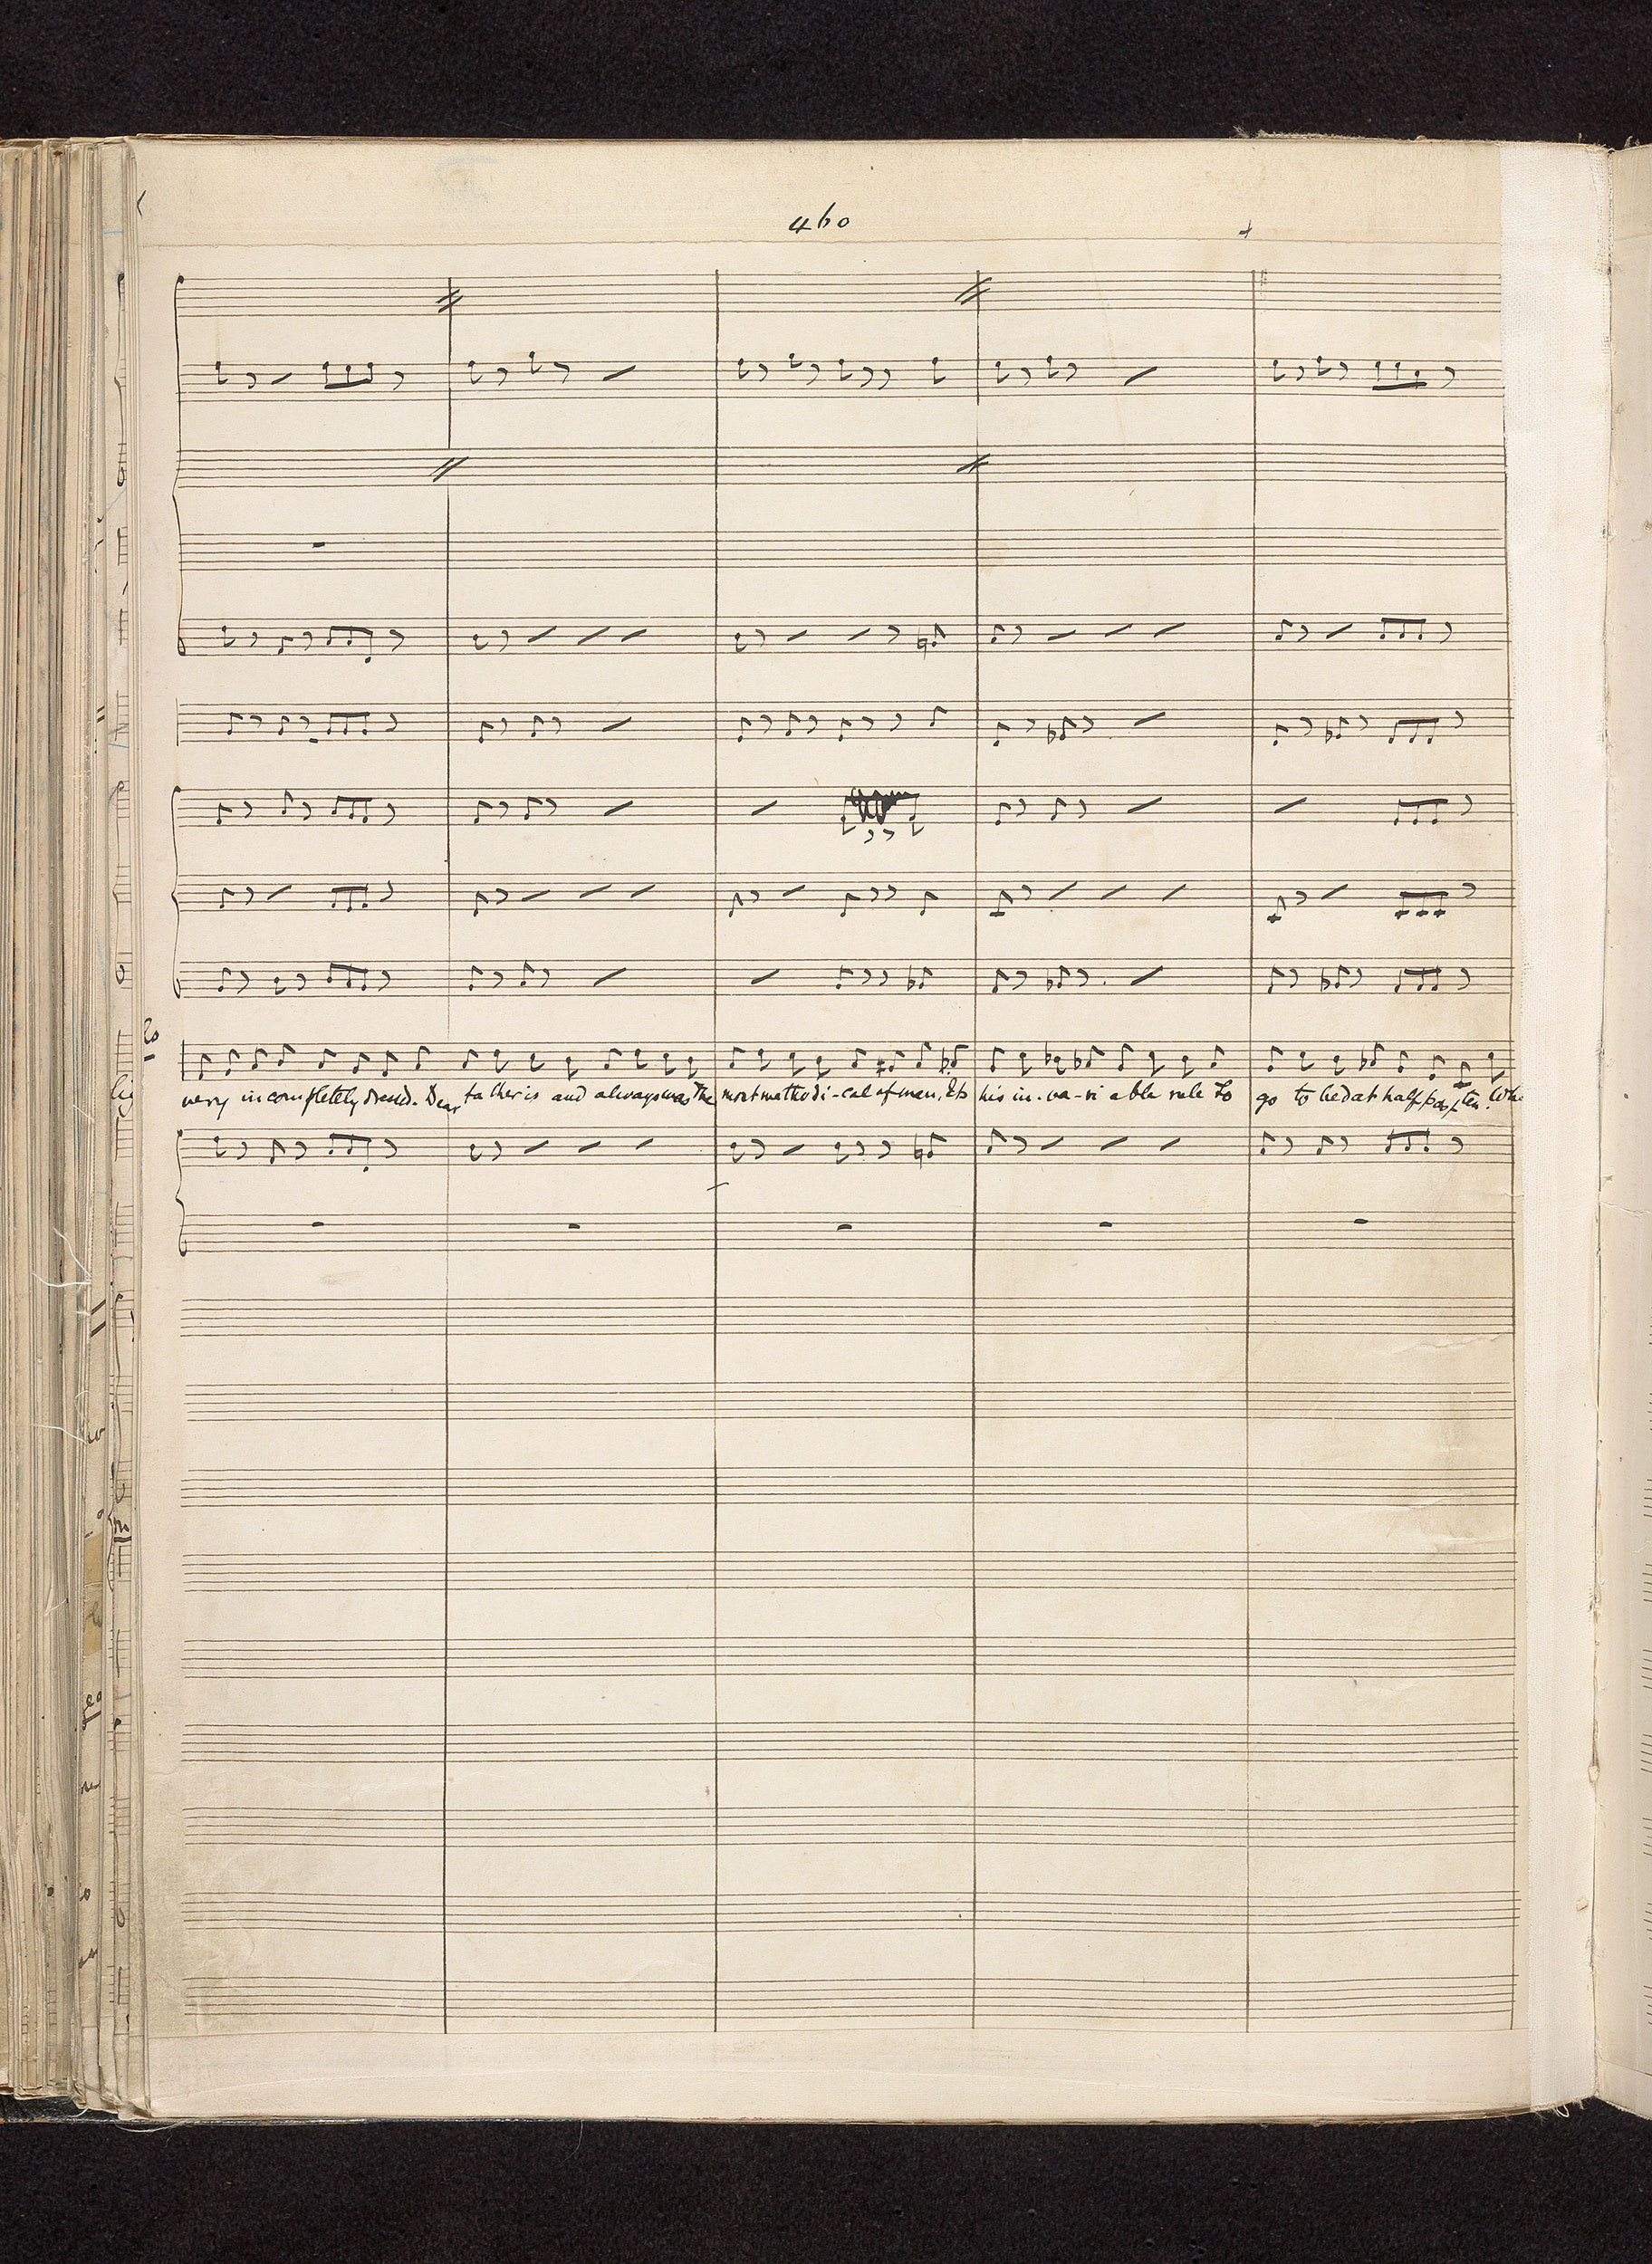 460
very incompletely dressed. Dear father is and always was the most methodi-cal of men, It's his in-va-ri able rule to go to bed at half past ten. Whe